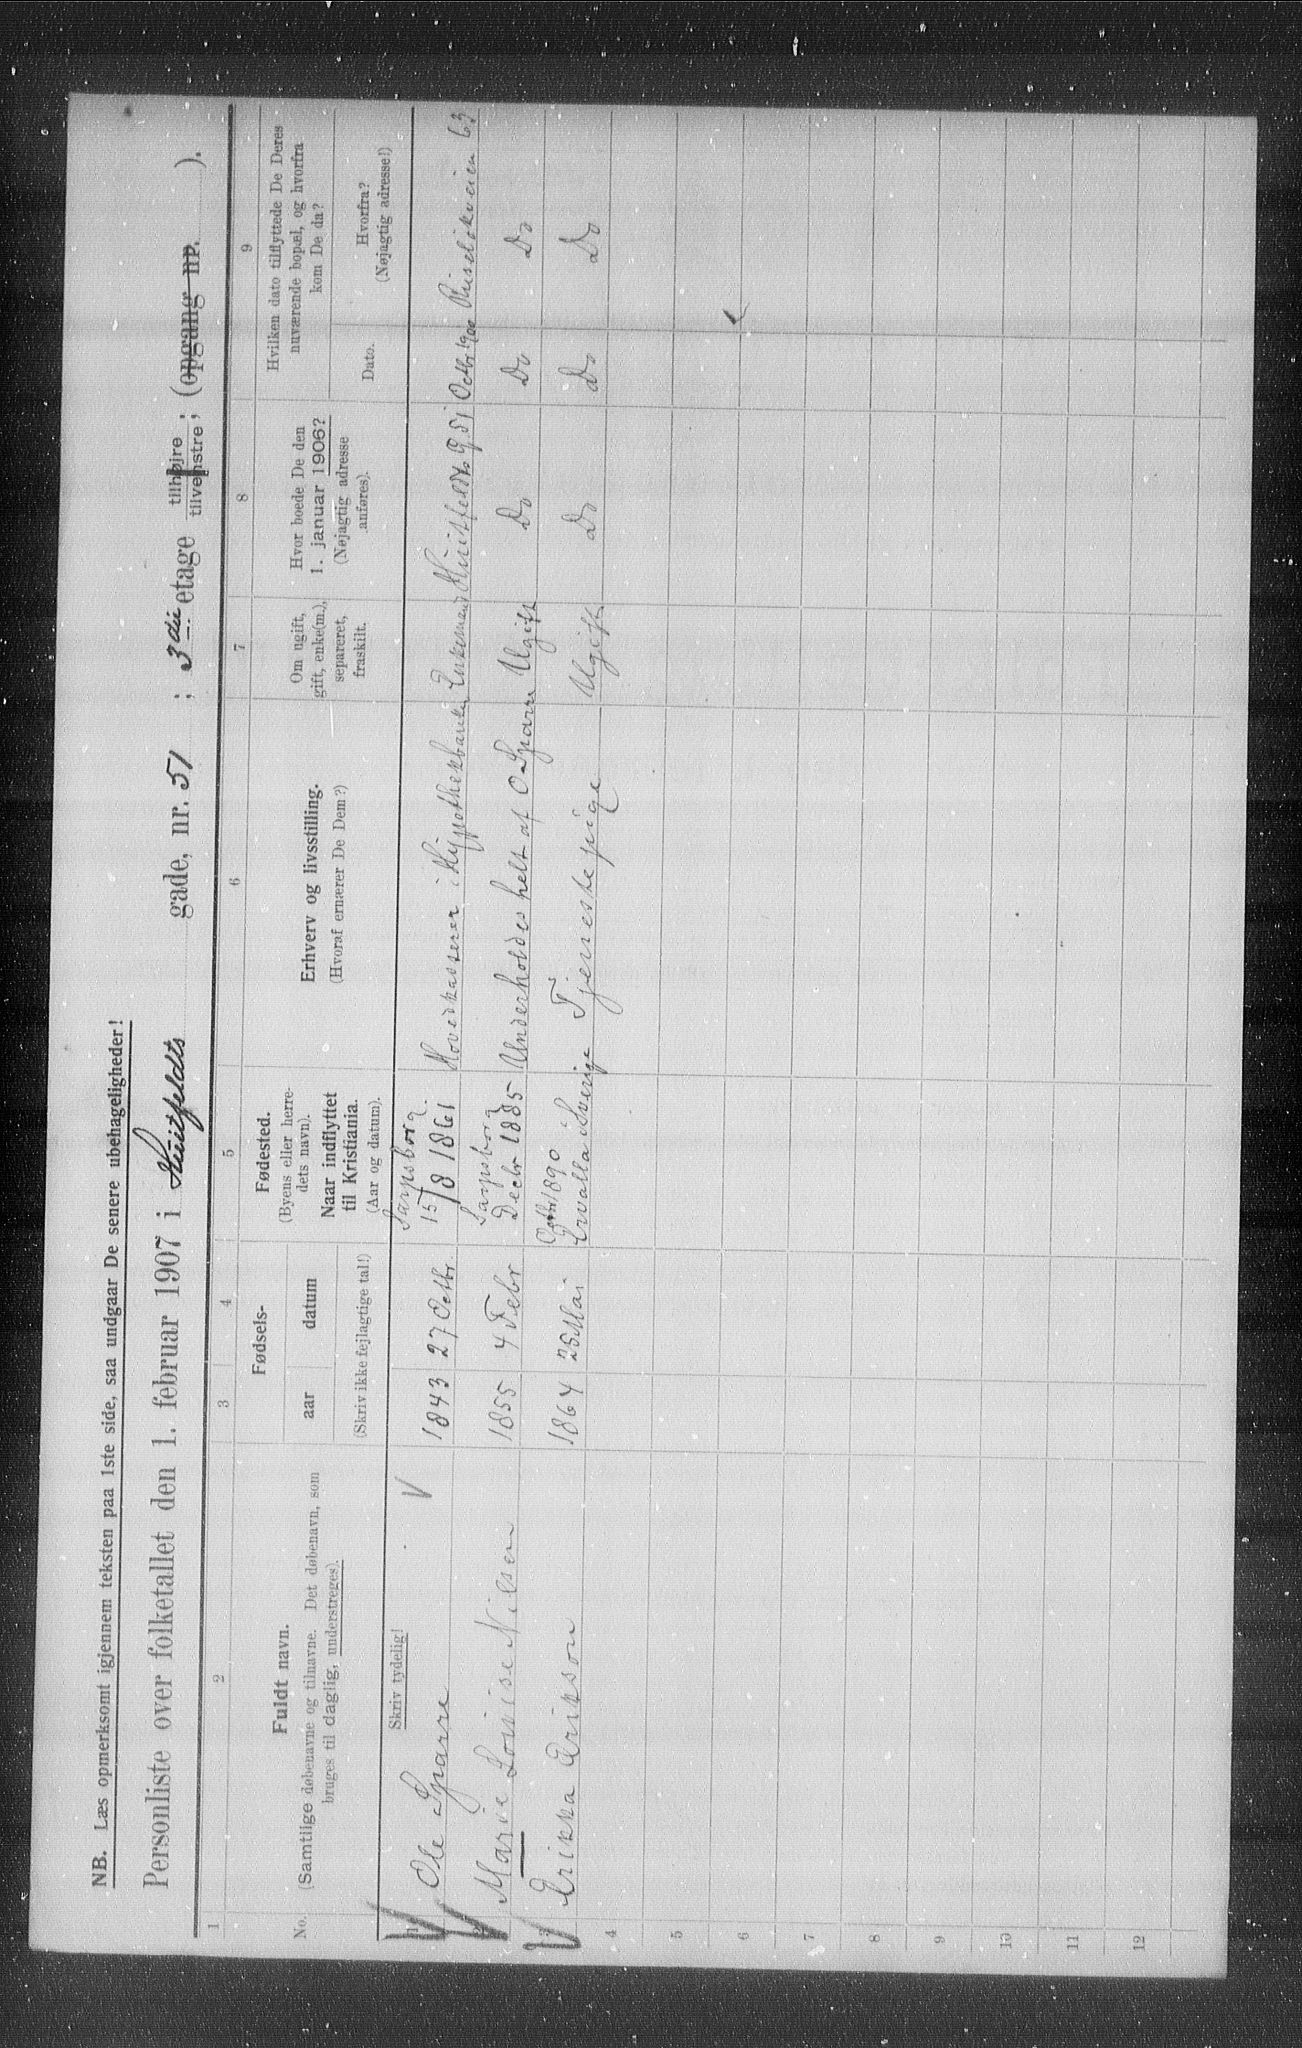 NB. Læs opmerksomt igjennem teksten paa 1ste side, saa undgaar De senere ubehageligheder!
Personliste over folketallet den 1. februar 1907 i Huitfeldts gade, nr. 51 ; 3die etage tilhøjre tilvenstre ; (opgang nr. ).
1 2 3 4 5 6 7 8 9
No.
Fuldt navn.
(Samtlige døbenavne og tilnavne. Det døbenavn, som
bruges til daglig, understreges).
Skriv tydelig!
Fødsels-
aar datum
(Skriv ikke fejlagtige tal!)
Fødested.
(Byens eller herre-
dets navn).
Naar indflyttet
til Kristiania.
(Aar og datum).
Erhverv og livsstilling.
(Hvoraf ernærer De Dem?)
Om ugift,
gift, enke(m.),
separeret,
fraskilt.
Hvor boede De den
1. januar 1906?
(Nøjagtig adresse
anføres).
Hvilken dato tilflyttede De Deres
nuværende bopæl, og hvorfra
kom De da?
Dato.
Hvorfra?
(Nøjagtig adresse!)
Sarpsborg.
1 Ole Sparre 1843 27 Octbr 15/8 1861 Hovedkasserer i Hypothekbanken Enkemand Huitfeldts g 51 Octbr 1900 Ruseløkveien 63
Sarpsborg
2 Marie Louise Nilsen 1855 4 Febr Decbr 1885 Underholdes helt af O Sparre Ugift Do Do Do
Octbr 1890
3 Erikka Erikson 1864 25 Mai Ervalla i Sverige Tjenestepige Ugift Do Do Do
4
5
6
7
8
9
10
11
12